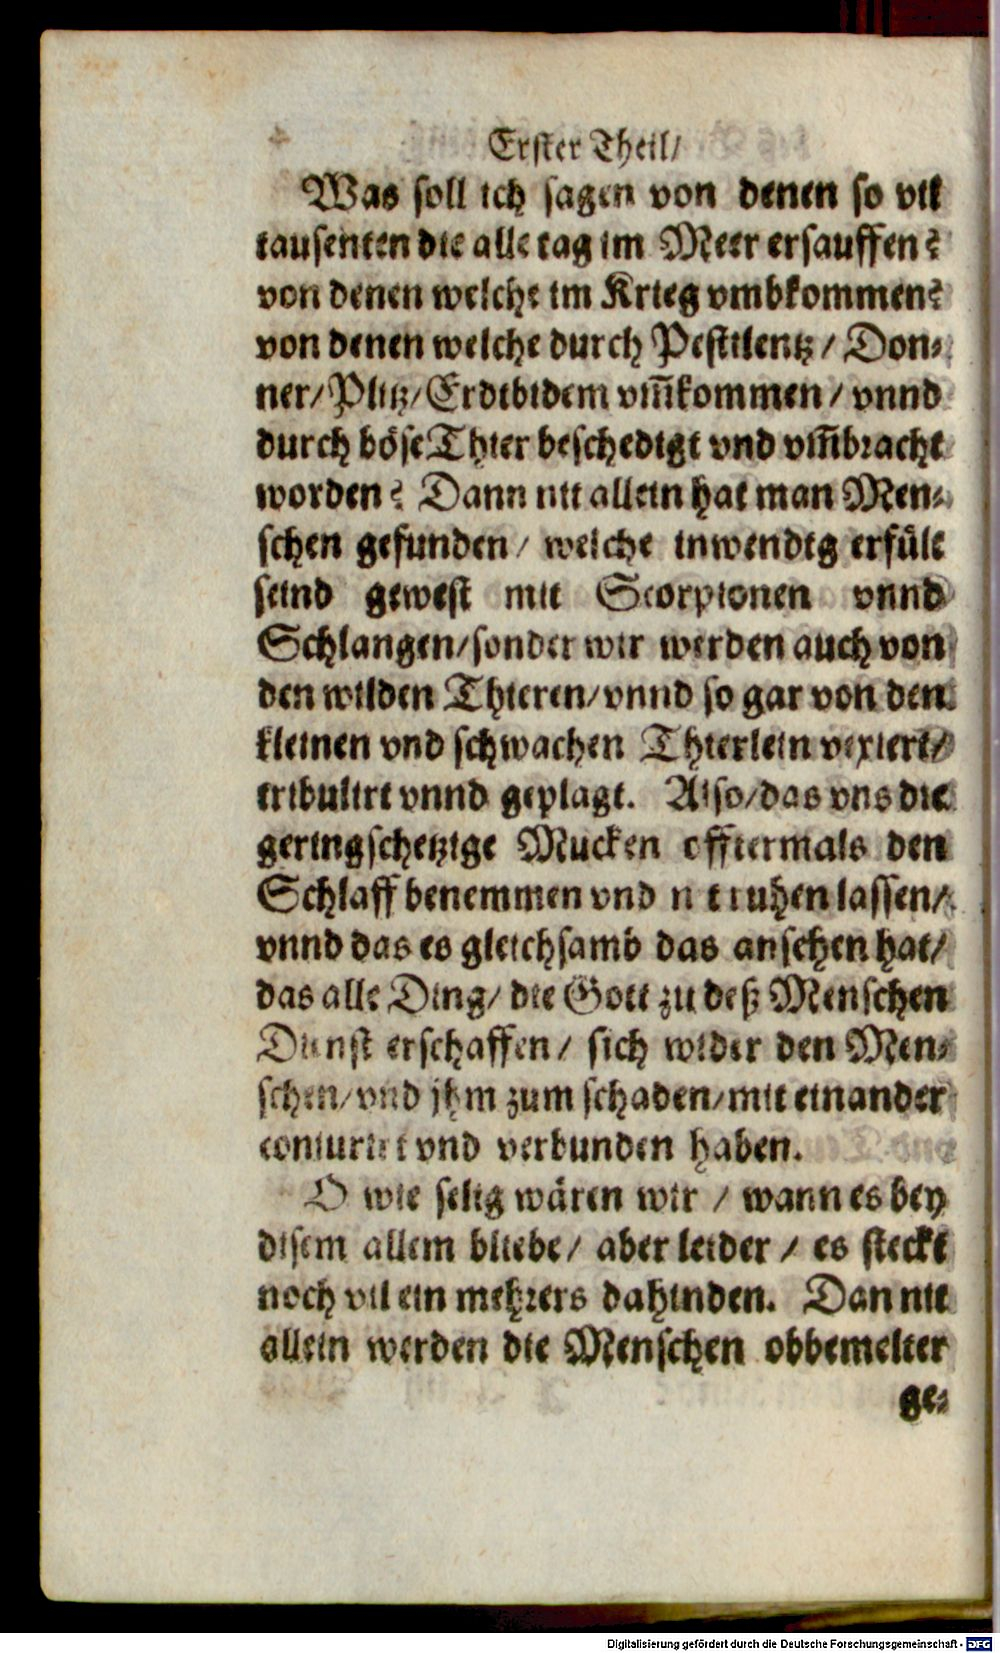 Erster Theil/
Was soll ich sagen von denen so vil
tausenten die alle tag im Meer ersauffen?
von denen welche im Krieg vmbkommen?
von denen welche durch Pestilentz / Don⸗
ner/ Plitz/ Erdtbidem vm̃kommen / vnnd
durch böse Thier beschedigt vnd vm̃bracht
worden? Dann nit allein hat man Men⸗
schen gefunden / welche inwendig erfült
seind gewest mit Scorpionen vnnd
Schlangen/ sonder wir werden auch von
den wilden Thieren/ vnnd so gar von den
kleinen vnd schwachen Thierlein vexiert/
tribulirt vnnd geplagt. Also/ das vns die
geringschetzige Mucken offtermals den
Schlaff benemmen vnd nit ruhen lassen/
vnnd das es gleichsamb das ansehen hat/
das alle Ding/ die Gott zu deß Menschen
Dienst erschaffen / sich wider den Men⸗
schen/ vnd jhm zum schaden/ mit einander
coniuriert vnd verbunden haben.
O wie selig wären wir / wann es bey
disem allem bliebe/ aber leider / es steckt
noch vil ein mehrers dahinden. Dan nit
allein werden die Menschen obbemelter
ge⸗
Digitalisierung gefördert durch die Deutsche Forschungsgemeinschaft - DFG